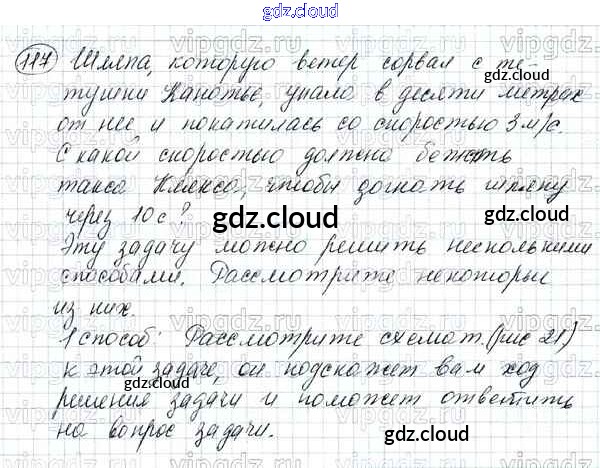 gdz.cloud
117 Шляпа, которую ветер сорвал с те-
тушки Канотье, упала в десяти метрах
от нее и покатилась со скоростью 3 м/с.
С какой скоростью должна бежать
такса Клякса, чтобы догнать шляпу
через 10 с?
Эту задачу можно решить несколькими
способами. Рассмотрите некоторые
из них.
1 способ: Рассмотрите схемат. (рис 21)
к этой задаче, он подскажет вам ход
решения задачи и поможет ответить
на вопрос задачи.
gdz.cloud
gdz.cloud
gdz.cloud
gdz.cloud
gdz.cloud
gdz.cloud
gdz.cloud